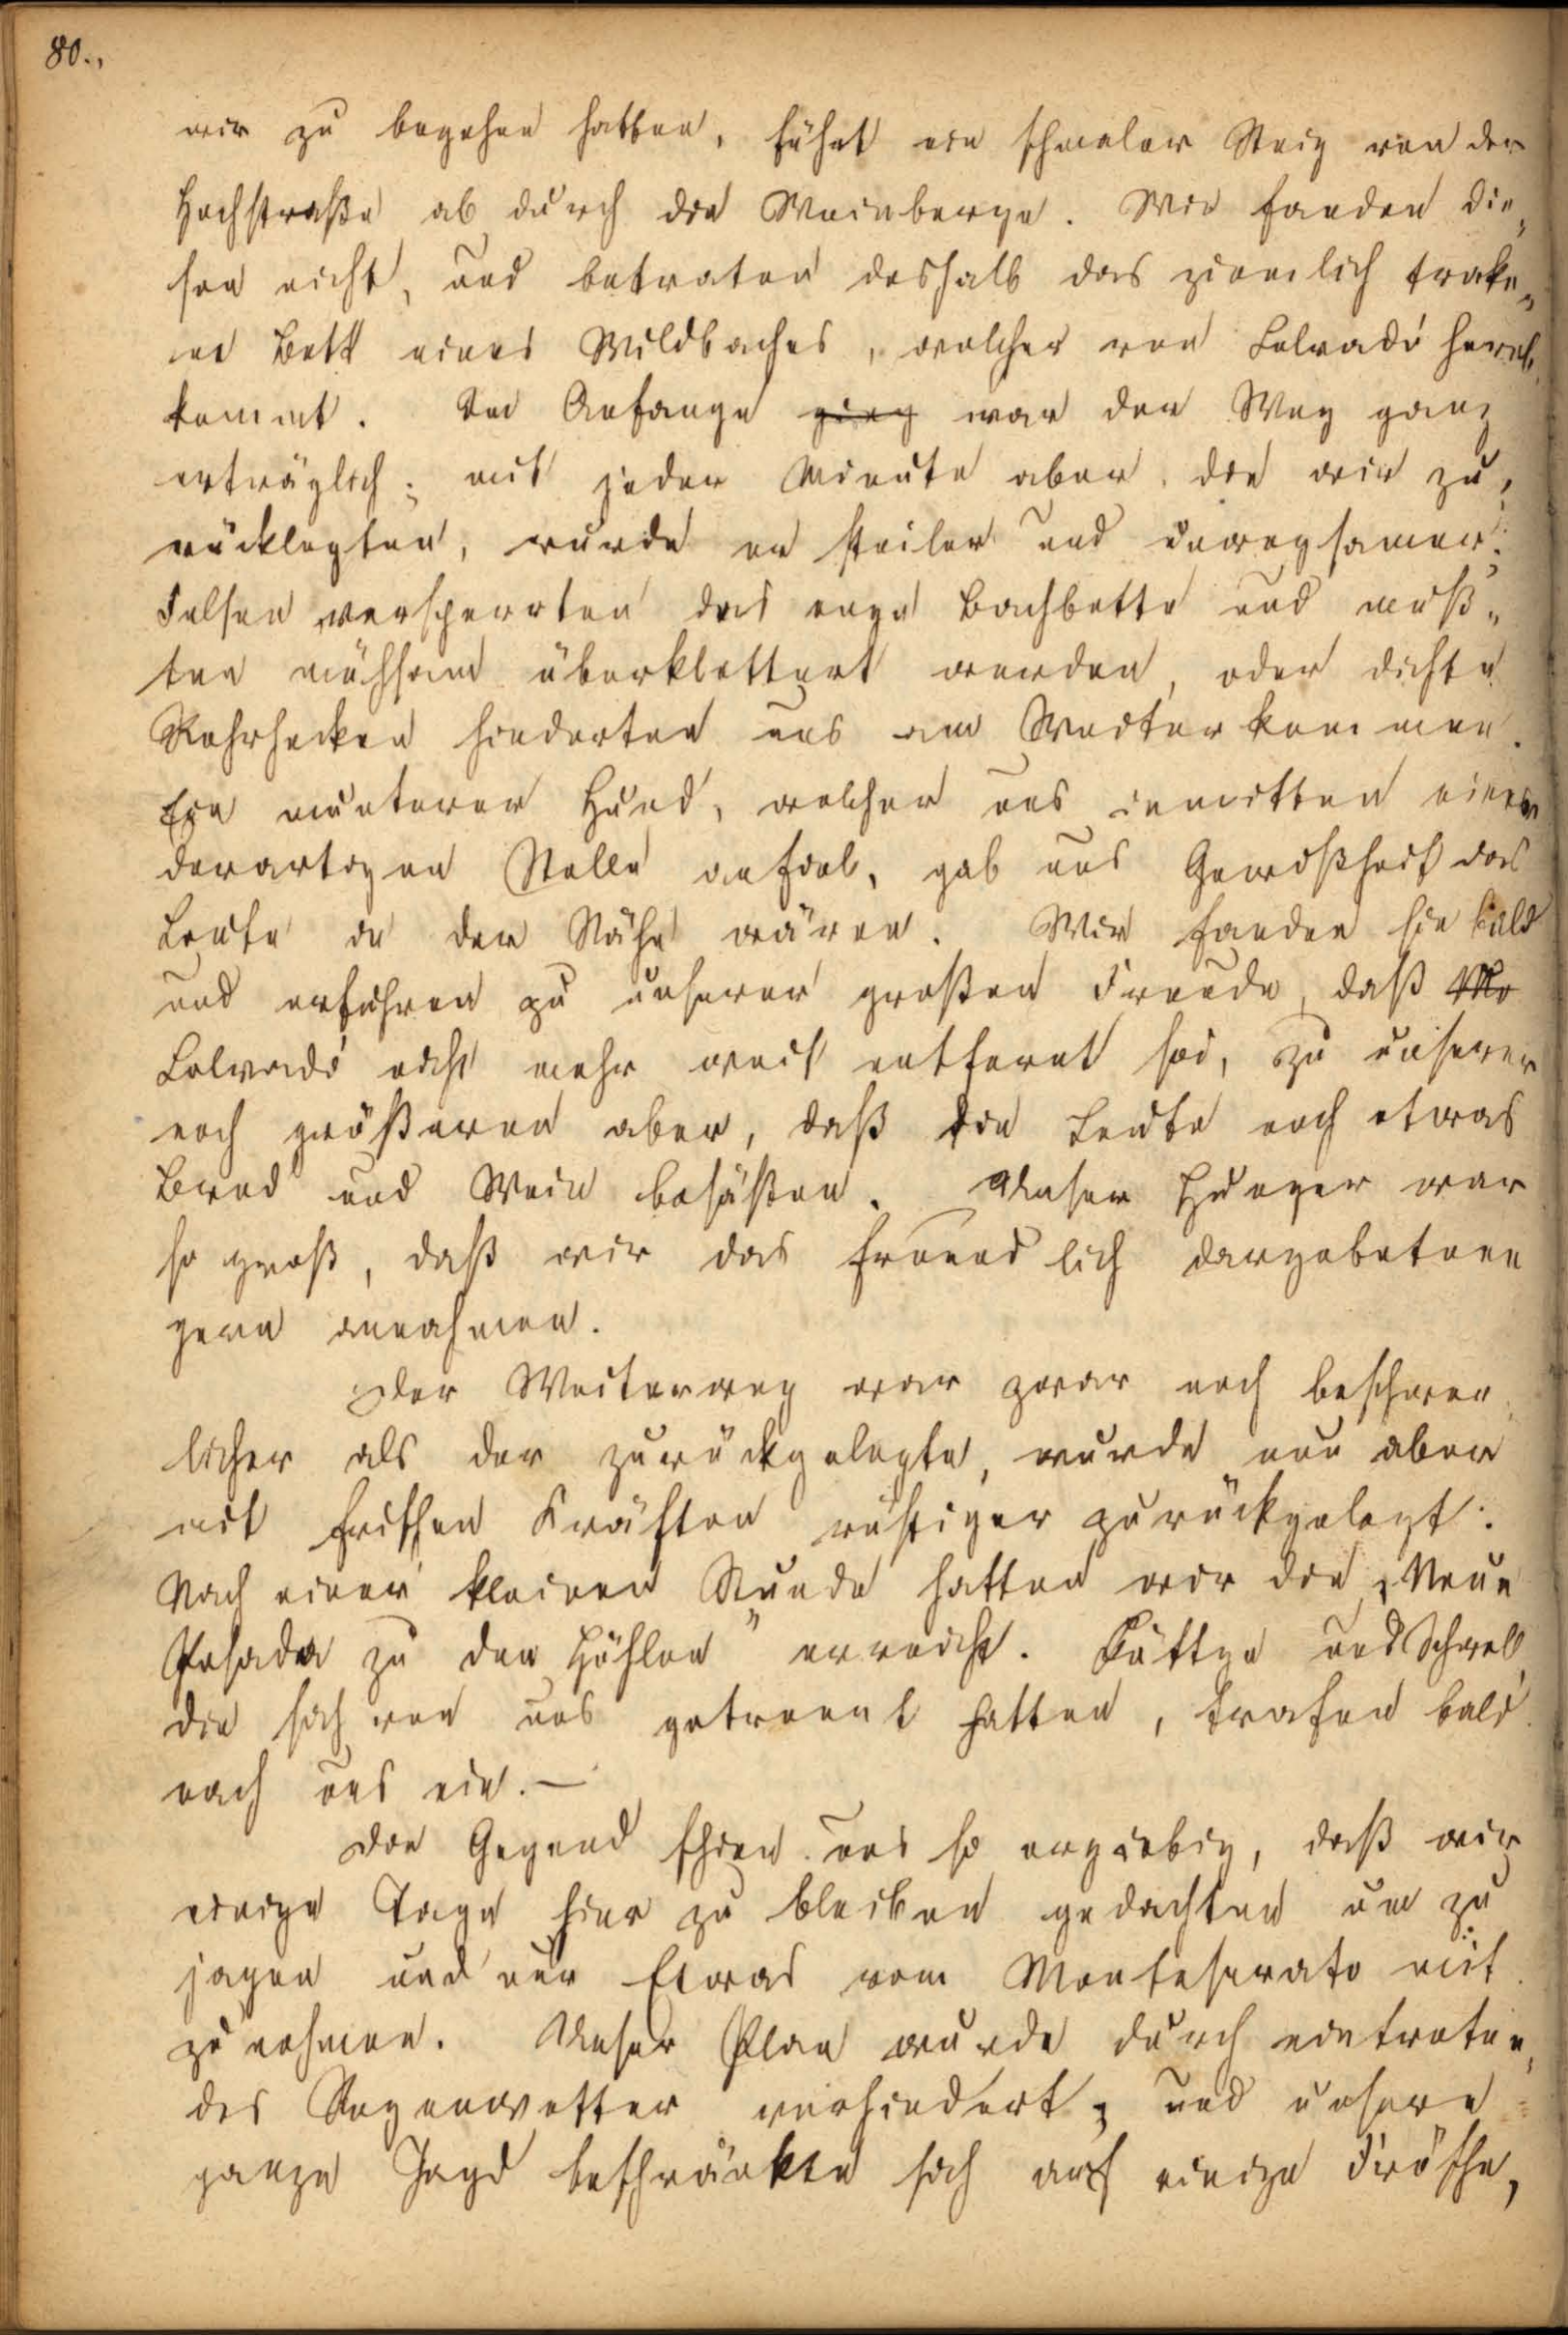 80.,
wir zu begehen hatten, führt ein schmaler Steig von der
Hochstraße ab durch die Weinberge. Wir fanden die„
sen nicht, und betraten deshalb das ziemlich trake„
ne Bett eines Wildbaches, welcher von Colvadó herab„
kommt. Im Anfange ging war der Weg ganz
erträglich; mit jeder Minute aber, die wir zu„
rücklegten, wurde er steiler und unwegsamer.
Felsen versperrten das enge Bachbette und muß„
ten mühsam überklettert werden, oder dichte
Rohrhecken hinderten uns am Weiterkommen.
Ein munterer Hund, welcher uns inmitten einer
derartigen Stelle anfiel, gab uns Gewißheit das
Leute in der Nähe wären. Wir fanden sie bald
und erfuhren zu unserer großen Freude, daß Mo
Colvadó nicht mehr weit entfernt sei, zu unserer
noch größeren aber, daß die Leute noch etwas
Brod und Wein besäßen. Unser Hunger war
so groß, daß wir das freundlich dargebotene
gern annahmen.
Der Weiterweg war zwar noch beschwer„
licher als der zurückgelegte, wurde nun aber
mit frischen Kräften rüstiger zurückgelegt.
Nach einer kleinen Stunde hatten wir die „Neue
Posada zu den Höhlen" erreicht. Küttge und Schnell,
die sich von uns getrennt hatten, trafen bald
nach uns ein. —
Die Gegend schien uns so ergiebig, daß wir
einige Tage hier zu bleiben gedachten um zu
jagen und nur Etwas vom Monteserato mit
zu nehmen. Unser Plan wurde durch eintreten„
des Regenwetter verhindert; und unsere
ganze Jagd beschränkte sich auf einige Frösche,